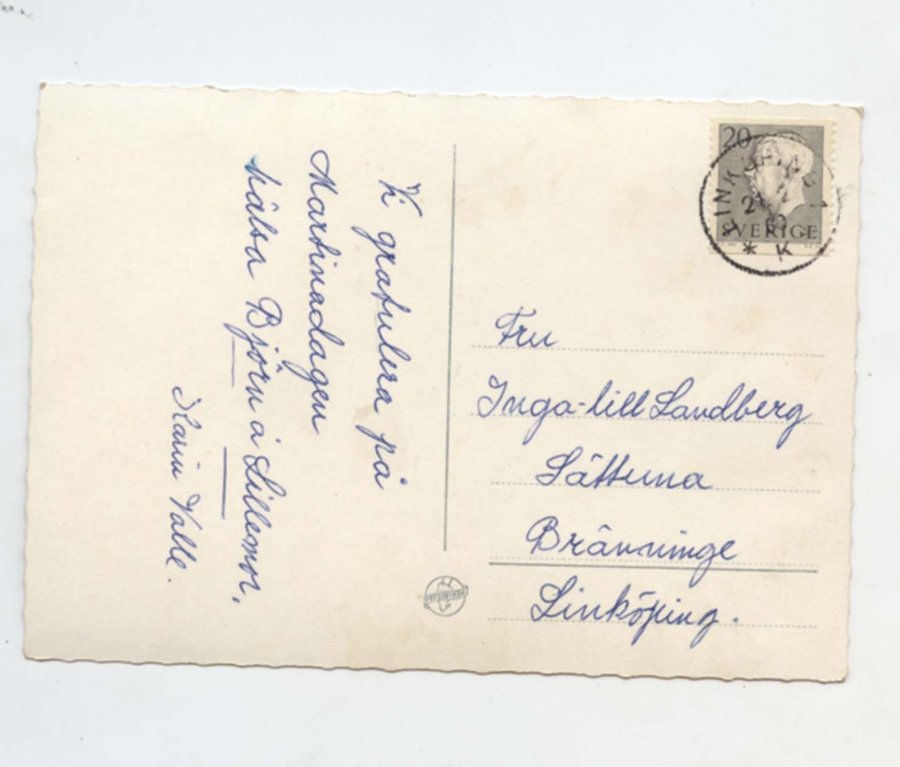 Vi gratulera på
Martinadagen
hälsa Björn å Lillemor.
Karin Valle.
20
SVERIGE
LINKÖPING 1
* K
Fru
Inga-lill Landberg
Sättuna
Brånninge
Linköping.